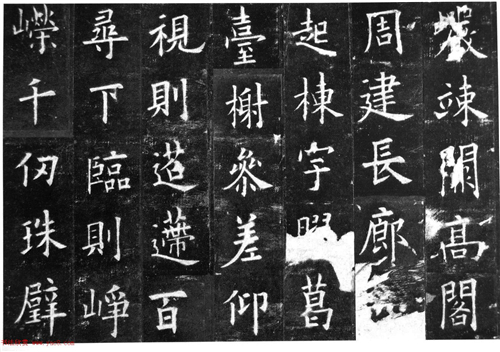 竦闕高閣
周建長廊
起棟宇葛
臺榭參差仰
視則迢遰百
尋下臨則崢
嶸千仞珠璧